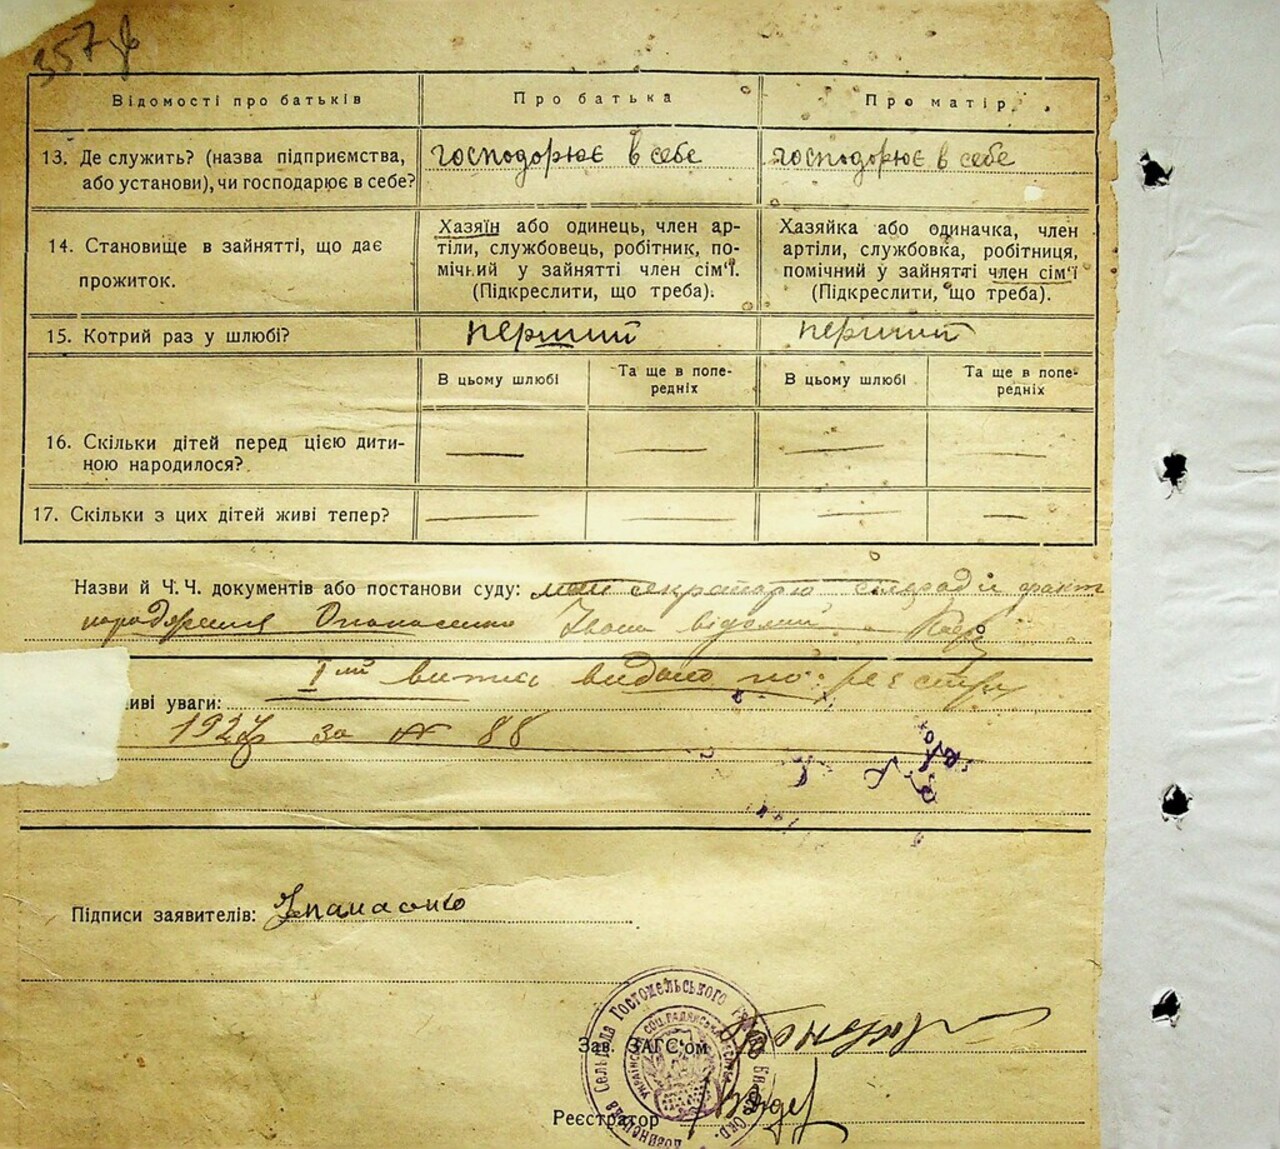 357
Відомості про батьків
Про батька
Про матір
13. Де служить? (назва підприємства,
або установи), чи господарює в себе?
господорює в себе
господорює в себе
14. Становище в зайнятті, що дає
прожиток.
Хазяїн або одинець, член ар-
тіли, службовець, робітник, по-
мічний у зайнятті член сім'ї.
(Підкреслити, що треба).
Хазяйка або одиначка, член
артіли, службовка, робітниця,
помічний у зайнятті член сім'ї
(Підкреслити, що треба).
15. Котрий раз у шлюбі?
перший
перший
В цьому шлюбі
Та ще в попе-
редніх
В цьому шлюбі
Та ще в попе-
редніх
16. Скільки дітей перед цією дити-
ною народилося?
17. Скільки з цих дітей живі тепер?
Назви й Ч. Ч. документів або постанови суду: мені секратарю сільради факт
народження Опанасенко Івана відомий
І-ий витис видано по реєстру
иві уваги:
1927 за № 88
Підписи заявителів: Опанасенко
Зав. ЗАГС'ом
Реєстратор
Сельрада Гостомельського